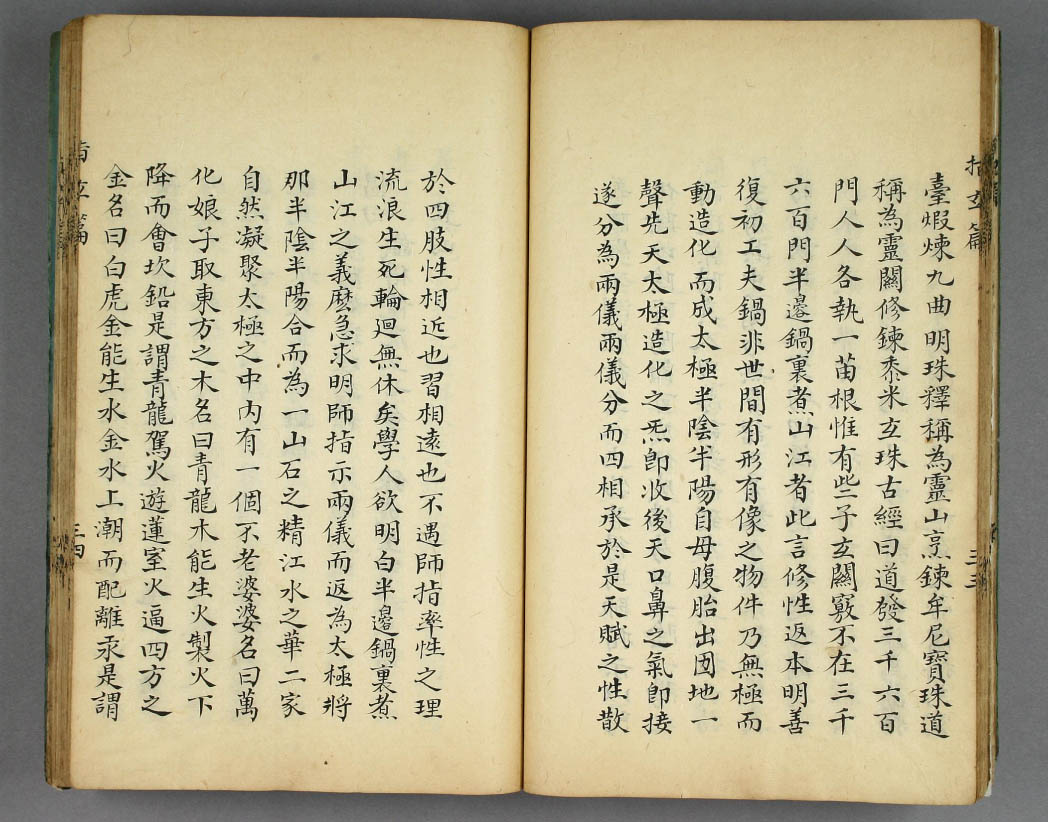 指玄篇
三三
臺煆煉九曲明珠釋稱為靈山烹鍊牟尼寶珠道
稱為靈關修鍊黍米玄珠古經曰道發三千六百
門人人各執一苗根惟有些子玄關竅不在三千
六百門半邊鍋裏煮山江者此言修性返本明善
復初工夫鍋非世間有形有像之物件乃無極而
動造化而成太極半陰半陽自母腹胎出囫地一
聲先天太極造化之炁卽收後天口鼻之氣卽接
遂分為兩儀兩儀分而四相承於是天賦之性散
於四肢性相近也習相遠也不遇師指率性之理
流浪生死輪迴無休矣學人欲明白半邊鍋裏煮
山江之義麼急求明師指示兩儀而返為太極將
那半陰半陽合而為一山石之精江水之華二家
自然凝聚太極之中內有一個不老婆婆名曰萬
化娘子取東方之木名曰青龍木能生火製火下
降而會坎鉛是謂青龍駕火遊蓮室火逼四方之
金名曰白虎金能生水金水上潮而配離汞是謂
指玄篇
三四